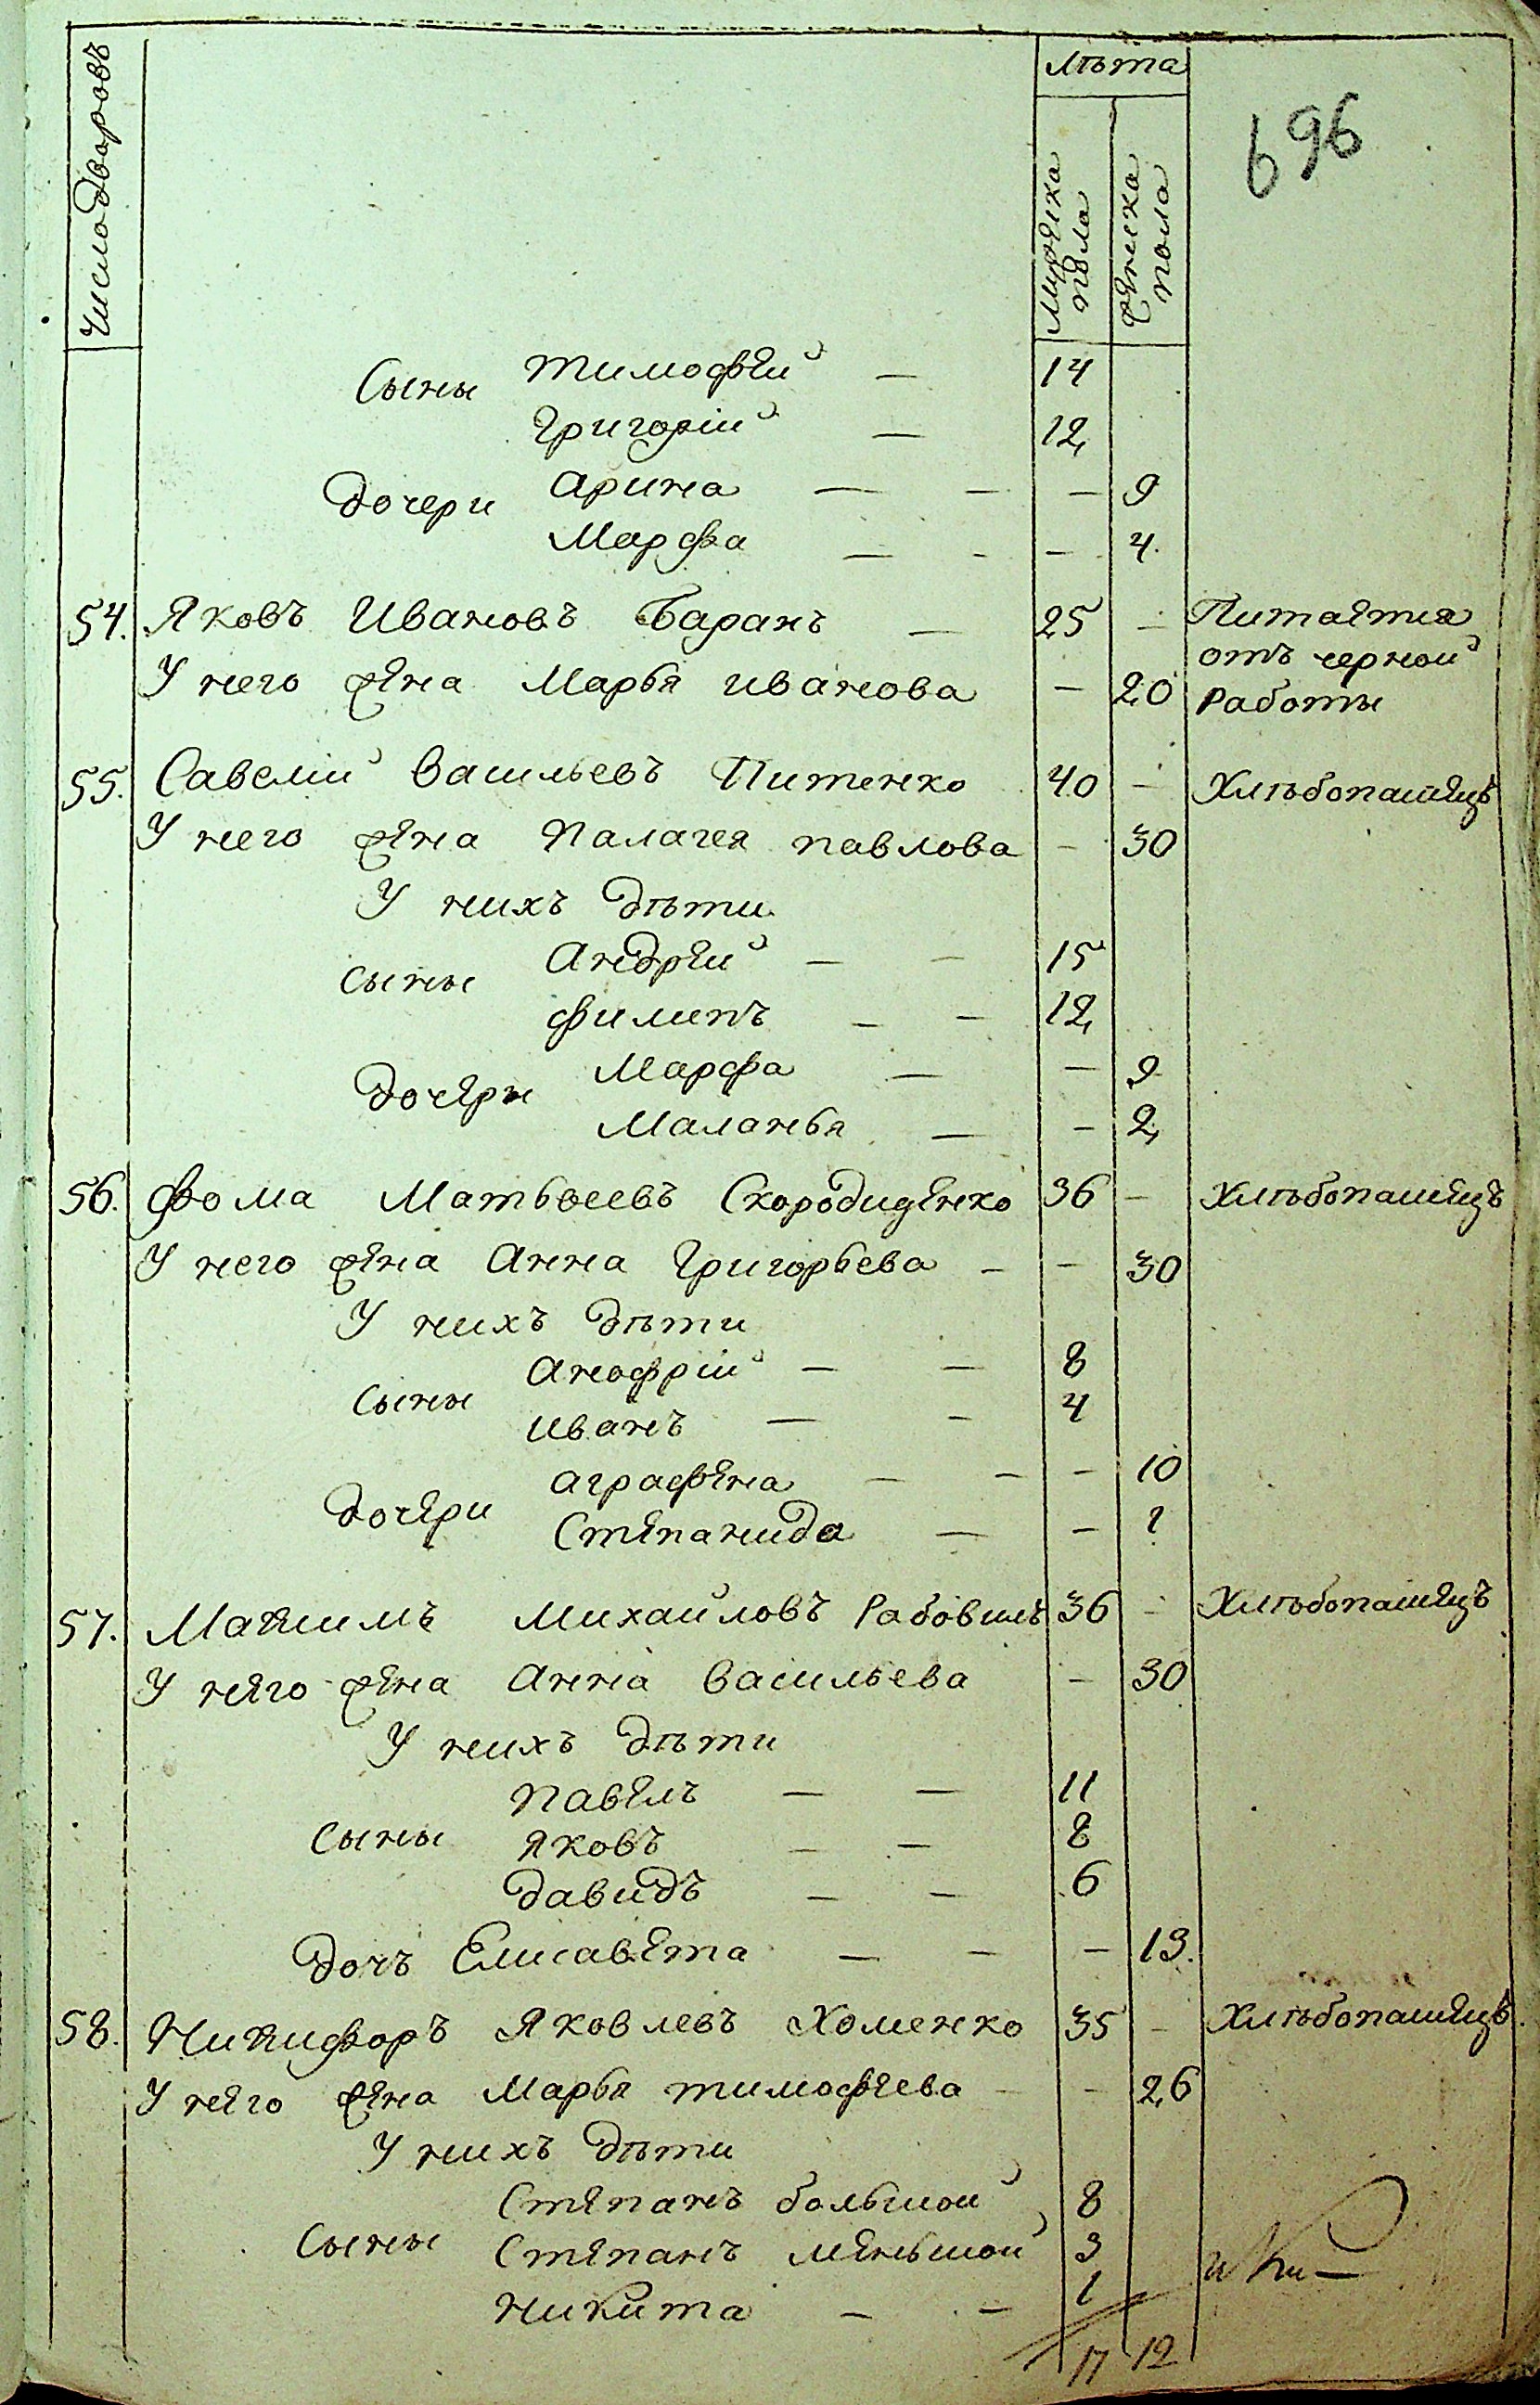 Число дворовъ
Лѣта
Мужеска пола
Женска пола
696
Сыны Тимофей — 14
Григорій — 12
Дочери Арина — — — 9
Марфа — - — 4.
54. Яковъ Ивановъ Баранъ — 25 — Питается
отъ черной
У него жена Марья Иванова — 20 работы
55. Савелій Васильевъ Питенко 40 — Хлѣбопашецъ
У него жена Палагея Павлова — 30
У нихъ дѣти
Сыны Андрей — — 15
Филипъ — — 12
Дочери Марфа — — 9
Маланья — — 2
56. Фома Матвеевъ Скородиденко 36 — Хлѣбопашецъ
У него жена Анна Григорьева — — 30
У нихъ дѣти
Сыны Анофрій — — 8
Иванъ — — 4
Дочери Аграфена — — — 10
Степанида — — 1
57. Максимъ Михайловъ 36 — Хлѣбопашецъ
У него жена Анна Васильева — 30
У нихъ дѣти
Павелъ — — 11
Сыны Яковъ — — 8
Давидъ — — 6
Дочь Елисавета — — — 13.
58. Никифоръ Яковлевъ Хоменко 35 — Хлѣбопашецъ.
У него жена Марья Тимофеева — — 26
У нихъ дѣти
Степанъ большой 8
Сыны Степанъ меньшой 3
Никита — — 1
17 12